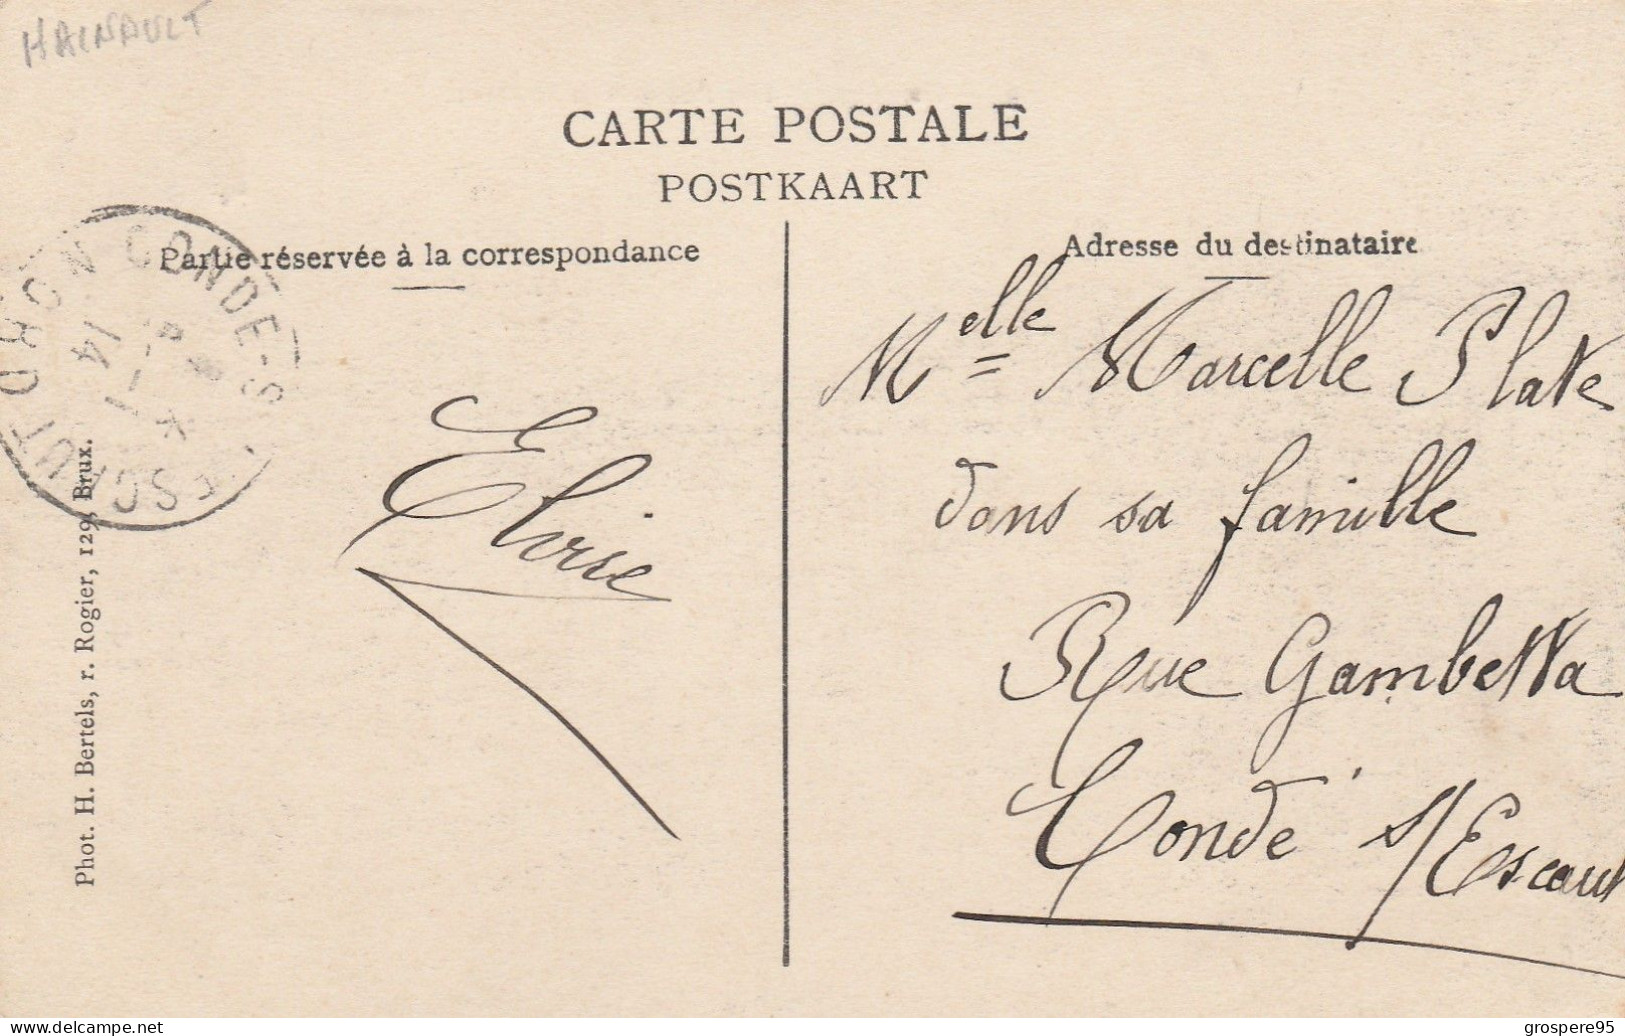 HAINAULT
CARTE POSTALE
POSTKAART
Partie réservée à la correspondance
Adresse du destinataire
CONDE-S
ESCAUT
NORD
14
Melle Marcelle Plate
dans sa famille
Rue Gambetta
Condé s/Escaut
Eloise
Phot. H. Bertels, r. Rogier, 129, Brux.
delcampe.net
grospere95